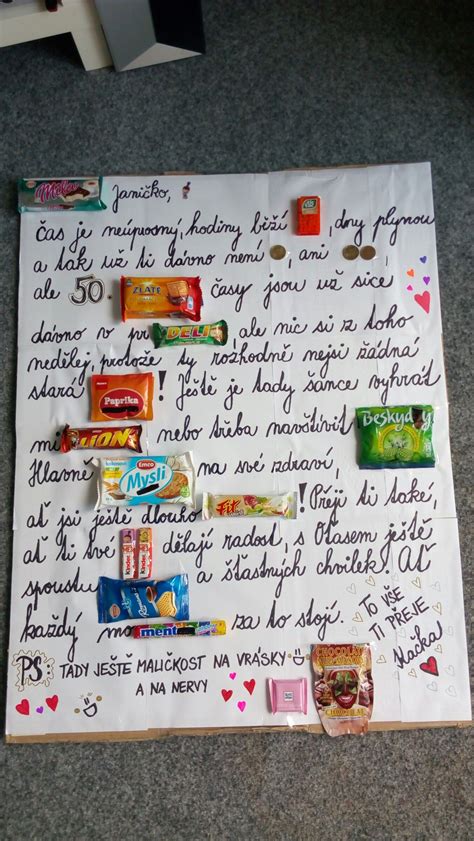 Milka Janičko,
čas je neúprosný, hodiny běží tic tac, dny plynou
a tak už ti dávno není , ani ,
ale 50. ZLATÉ časy jsou už sice
dávno v pr DELI , ale nic si z toho
nedělej, protože ty rozhodně nejsi žádná
stará Paprika ! Ještě je tady šance vyhrát
mi LION nebo třeba navštívit Beskydy
Hlavně Emco Mysli na své zdraví,
ať jsi ještě dlouho Fit ! Přeji ti také,
ať ti své kinder dělají radost, s Otasem ještě
spoustu a šťastných chvilek. Ať
každý mo mento za to stojí. TO VŠE
TI PŘEJE
Hačka
PS TADY JEŠTĚ MALIČKOST NA VRÁSKY
A NA NERVY
CHOCOLATE